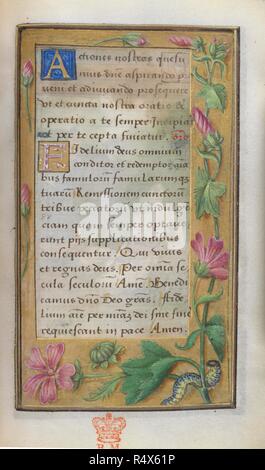 Actiones nostras quesu
mus dñe aspirando p
veni et adiuvando prosequere
ut et cuncta nostra oratio et
operatio a te semper incipiat
et per te cepta finiatur. Oro
Fidelium deus omnium
conditor et redemptor aīa
bus famulorum famularumqz
tuarum Remissionem cunctorum
tribue peccatorū ut indulgē
ciam quam semper optave
runt piis supplicationibus
consequantur. Qui vivis
et regnas deus. Per omīa se
cula seculorum Amē. Benedi
camus dño Deo gras. Fide
lium aīe per miām dei sine fine
requiescant in pace Amen.
B M
alamy
Image ID: R4X61P
www.alamy.com